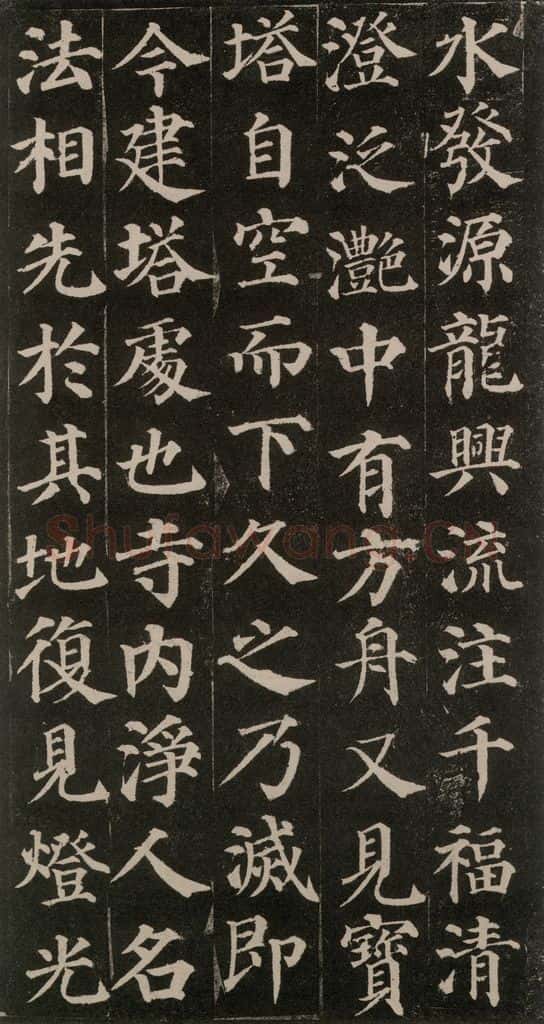 水發源龍興流注千福清
澄泛灔中有方舟又見寶
塔自空而下久之乃滅即
今建塔處也寺内淨人名
法相先於其地復見燈光
Shufawang.CN